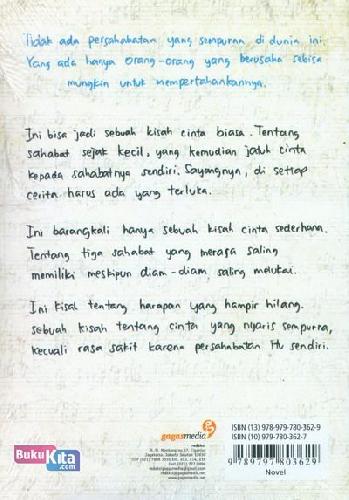 Tidak ada persahabatan yang sempurna di dunia ini.
Yang ada hanya orang-orang yang berusaha sebisa
mungkin untuk mempertahankannya.
Ini bisa jadi sebuah kisah cinta biasa. Tentang
sahabat sejak kecil, yang kemudian jatuh cinta
kepada sahabatnya sendiri. Sayangnya, di setiap
cerita harus ada yang terluka.
Ini barangkali hanya sebuah kisah cinta sederhana.
Tentang tiga sahabat yang merasa saling
memiliki meskipun diam-diam saling melukai.
Ini kisah tentang harapan yang hampir hilang.
Sebuah kisah tentang cinta yang nyaris sempurna,
kecuali rasa sakit karena persahabatan itu sendiri.
gagasmedia
redaksi
ISBN (13) 978-979-780-362-9
ISBN (10) 979-780-362-7
9 789797 803629
Novel
BukuKita
.com